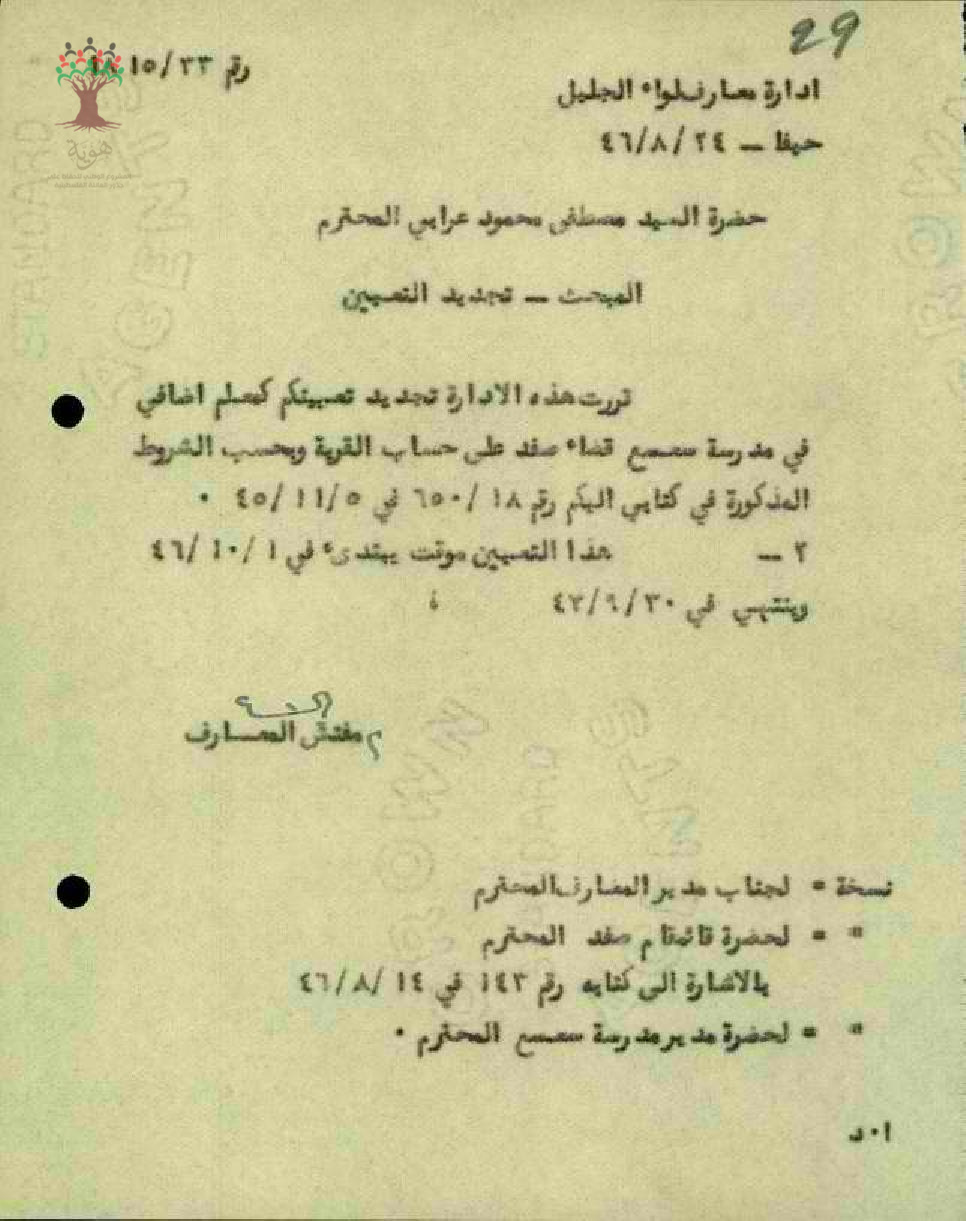 29
رقم ١٥/٣٣
ادارة معارف لواء الجليل
حيفا — ٤٦/٨/٢٤
هوية
حضرة السيد مصطفى محمود عرابي المحترم
المبحث — تجديد التعيين
قررت هذه الادارة تجديد تعيينكم كمعلم اضافي
في مدرسة سعسع قضاء صفد على حساب القرية وبحسب الشروط
المذكورة في كتابي اليكم رقم ٦٥٠/١٨ في ٤٥/١١/٥ ٠
٢ — هذا التعيين موقت يبتدىء في ٤٦/١٠/١
وينتهي في ٤٧/٩/٣٠
مفتش المعارف
نسخة = لجناب مدير المعارف المحترم
" = لحضرة قائمقام صفد المحترم
بالاشارة الى كتابه رقم ١٤٣ في ٤٦/٨/١٤
" = لحضرة مدير مدرسة سعسع المحترم ٠
ا٠د